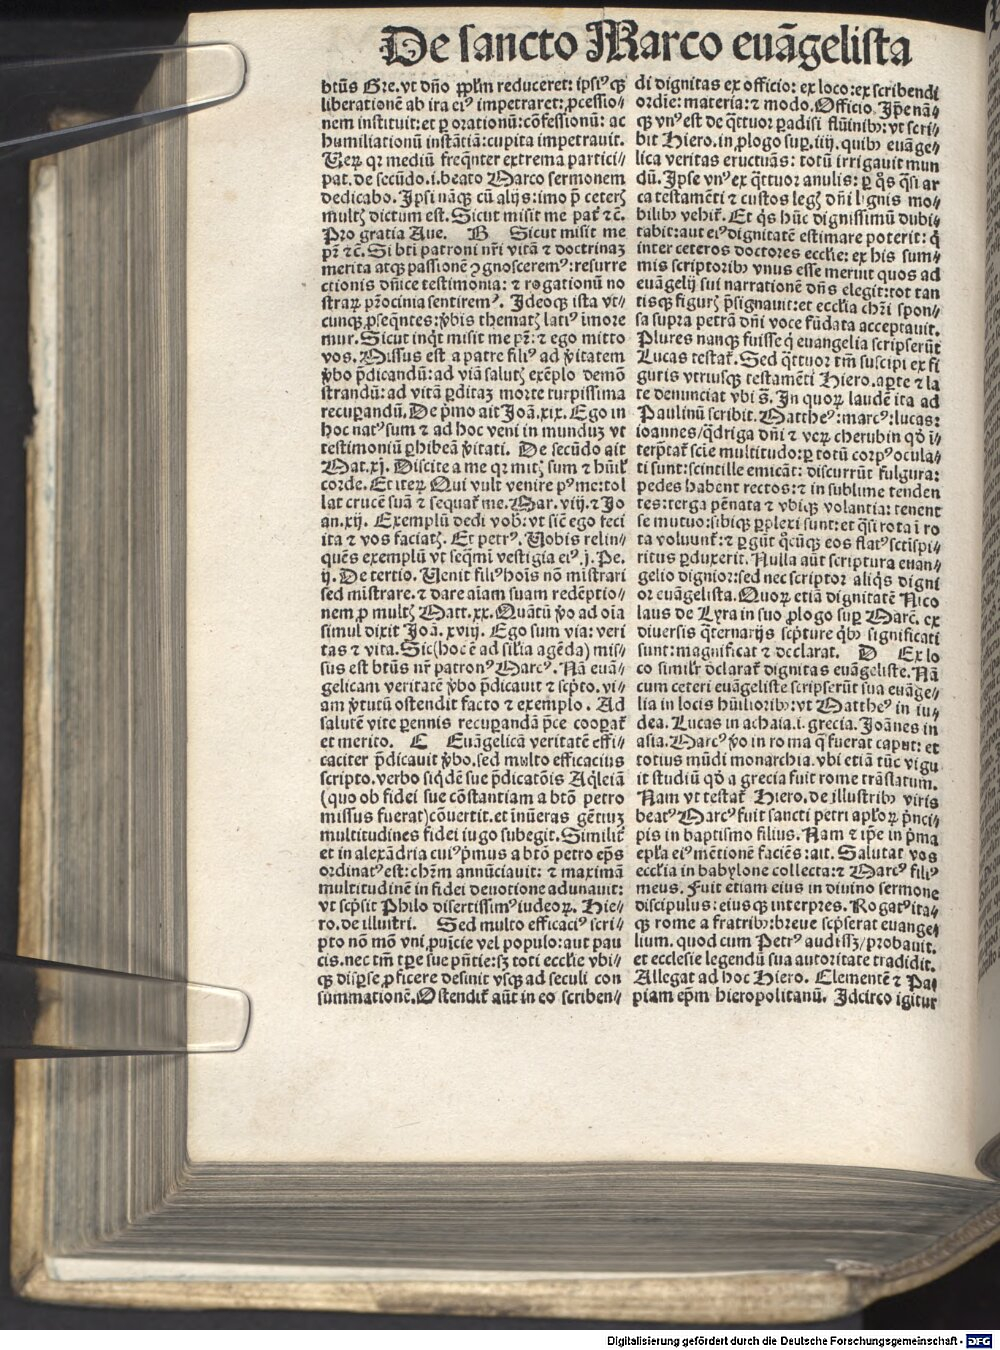 De sancto Marco euãgelista
btũs Gre. vt dño ꝓplm̃ reduceret: ipsiꝰqꝫ
liberationẽ ab ira eiꝰ impetraret: ꝓcessio⸗
nem instituit: et ꝑ orationũ: cõfessionũ: ac
humiliationũ instãtiã: cupita impetrauit.
Veꝝ qꝛ mediũ freq̃nter extrema partici⸗
pat. de secũdo .i. beato Marco sermonem
dedicabo. Ipsi nãqꝫ cũ alijs: imo p̃ ceterꝭ
multꝭ dictum est. Sicut misit me pat̃ ⁊c̃.
Pro gratia Aue. B Sicut misit me
pr̃ ⁊c̃. Si bti patroni nr̃i vitã ⁊ doctrinaꝫ
merita atqꝫ passionẽ ꝯgnosceremꝰ: resurre
ctionis dñice testimonia: ⁊ rogationũ no
straꝝ pr̃ocinia sentiremꝰ. Ideoqꝫ ista vt⸗
cunqꝫ ꝓseq̃ntes: ṽbis thematꝭ latiꝰ ĩmore
mur. Sicut inq̃t misit me pr̃: ⁊ ego mitto
vos. Missus est a patre filiꝰ ad ṽitatem
ṽbo p̃dicandũ: ad viã salutꝭ exẽplo demõ
strandũ: ad vitã ꝑditaꝫ morte turpissima
recuꝑandũ. De p̃mo ait Joã. xix. Ego in
hoc natꝰ sum ⁊ ad hoc veni in munduꝫ vt
testimoniũ ꝑhibeã ṽitati. De secũdo ait
Mat. xj. Discite a me qꝛ mitꝭ sum ⁊ hũil̃
corde. Et iteꝝ Qui vult venire pꝰ me: tol
lat crucẽ suã ⁊ sequat̃ me. Mar. viij. ⁊ Jo
an. xij. Exemplũ dedi vob̃: vt sic̃ ego feci
ita ⁊ vos faciatꝭ. Et petrꝰ. Vobis relin⸗
quẽs exemplũ vt seq̃mĩ vestigia eiꝰ .j. Pe.
ij. De tertio. Venit filiꝰ hoĩs nõ mĩstrari
sed mĩstrare. ⁊ dare aĩam suam redẽptio⸗
nem ꝓ multꝭ Matt. xx. Quãtũ ṽo ad oĩa
simul dixit Joã. xviij. Ego sum via: veri
tas ⁊ vita. Sic (hoc ẽ ad sil̃ia agẽda) mis⸗
sus est btũs nr̃ patronꝰ Marcꝰ. Nã euã⸗
gelicam veritatẽ ṽbo p̃dicauit ⁊ scp̃to. vi⸗
am ṽtutũ ostendit facto ⁊ exemplo. Ad
salutẽ vite ꝑennis recuꝑandã p̃ce cooꝑat̃
et merito. C Euãgelicã veritatẽ effi⸗
caciter p̃dicauit ṽbo. sed multo efficacius
scripto. verbo siq̃dẽ sue p̃dicatõis Aq̃leiã
(quo ob fidei sue cõstantiam a btõ petro
missus fuerat) cõuertit. et inũeras gẽtiuꝫ
multitudines fidei iugo subegit. Similit̃
et in alexãdria cuiꝰ p̃mus a btõ petro ep̃s
ordinatꝰ est: chr̃m annũciauit: ⁊ maximã
multitudinẽ in fidei deuotione adunauit:
vt scp̃sit Philo disertissimꝰ iudeoꝝ. Hie⸗
ro. de illustri. Sed multo efficaciꝰ scri⸗
pto nõ mõ vni ꝓuĩcie vel populo: aut pau
cis. nec tm̃ tꝑe sue pñtie: sꝫ toti ecclie vbi⸗
qꝫ disp̱se ꝓficere desinit vsqꝫ ad seculi con
summationẽ. Ostendit̃ aũt in eo scriben⸗
di dignitas ex officio: ex loco: ex scribendi
ordĩe: materia: ⁊ modo. Officio. Ip̃e nã⸗
qꝫ vnꝰ est de q̃ttuor ꝑadisi flũĩnibꝰ: vt scri⸗
bit Hiero. in ꝓlogo suꝑ. iiij. quibꝰ euãge⸗
lica veritas eructuãs: totũ irrigauit mun
dũ. Ipse vnꝰ ex q̃ttuor anulis: ꝑ q̃s q̃si ar
ca testamẽti ⁊ custos legꝭ dñi lignis mo⸗
bilibꝰ vehit̃. Et q̃s hũc dignissimũ dubi⸗
tabit: aut eiꝰ dignitatẽ estimare poterit: q̃
inter ceteros doctores ecclie: ex his sum⸗
mis scriptoribꝰ vnus esse meruit quos ad
euãgelij sui narrationẽ dñs elegit: tot tan
tisqꝫ figurꝭ p̃signauit: et ecclia chr̃i spon⸗
sa supra petrã dñi voce fũdata acceptauit.
Plures nanqꝫ fuisse q̃ euangelia scripserũt
Lucas testat̃. Sed q̃ttuor tm̃ suscipi ex fi
guris vtriusqꝫ testamẽti Hiero. aꝑte ⁊ la
te denunciat vbi s̃. In quoꝝ laudẽ ita ad
Paulinũ scribit. Mattheꝰ: marcꝰ: lucas:
ioannes / q̃driga dñi ⁊ veꝝ cherubin qd̃ ĩ⸗
terp̃tat̃ scĩe multitudo: ꝑ totũ corpꝰ ocula⸗
ti sunt: scintille emicãt: discurrũt fulgura:
pedes habent rectos: ⁊ in sublime tenden
tes: terga pẽnata ⁊ vbiqꝫ volantia: tenent
se mutuo: sibiqꝫ ꝑplexi sunt: et q̃si rota ĩ ro
ta voluunt̃: ⁊ ꝑgũt q̃cũqꝫ eos flatꝰ sctĩ spi⸗
ritus ꝑduxerit. Nulla aũt scriptura euan⸗
gelio dignior: sed nec scriptor aliq̃s digni
or euãgelista. Quoꝝ etiã dignitatẽ Nico
laus de Lyra in suo ꝓlogo suꝑ Marc̃. ex
diuersis q̃ternarijs scp̃ture q̃bꝰ significati
sunt: magnificat ⁊ declarat. D Ex lo
co similr̃ d̃clarat̃ dignitas euãgeliste. Nã
cum ceteri euãgeliste scripserũt sua euãge⸗
lia in locis hũilioribꝰ: vt Mattheꝰ in iu⸗
dea. Lucas in achaia .i. grecia. Joãnes in
asia. Marcꝰ ṽo in roma q̃ fuerat caput: et
totius mũdi monarchia. vbi etiã tũc vigu
it studiũ qd̃ a grecia fuit rome trãslatum.
Nam vt testat̃ Hiero. de illustribꝰ viris
beatꝰ Marcꝰ fuit sancti petri apl̃oꝝ p̃nci⸗
pis in baptismo filius. Nam ⁊ ip̃e in p̃ma
epl̃a eiꝰ mẽtionẽ faciẽs: ait. Salutat vos
ecclia in babylone collecta: ⁊ Marcꝰ filiꝰ
meus. Fuit etiam eius in diuino sermone
discipulus: eiusqꝫ interpres. Rogatꝰ ita⸗
qꝫ rome a fratribꝰ: breue scp̃serat euange⸗
lium. quod cum Petrꝰ audissꝫ / probauit.
et ecclesie legendũ sua autoritate tradidit.
Allegat ad hoc Hiero. Clementẽ ⁊ Pa⸗
piam ep̃m hieropolitanũ. Idcirco igitur
Digitalisierung gefördert durch die Deutsche Forschungsgemeinschaft - DFG